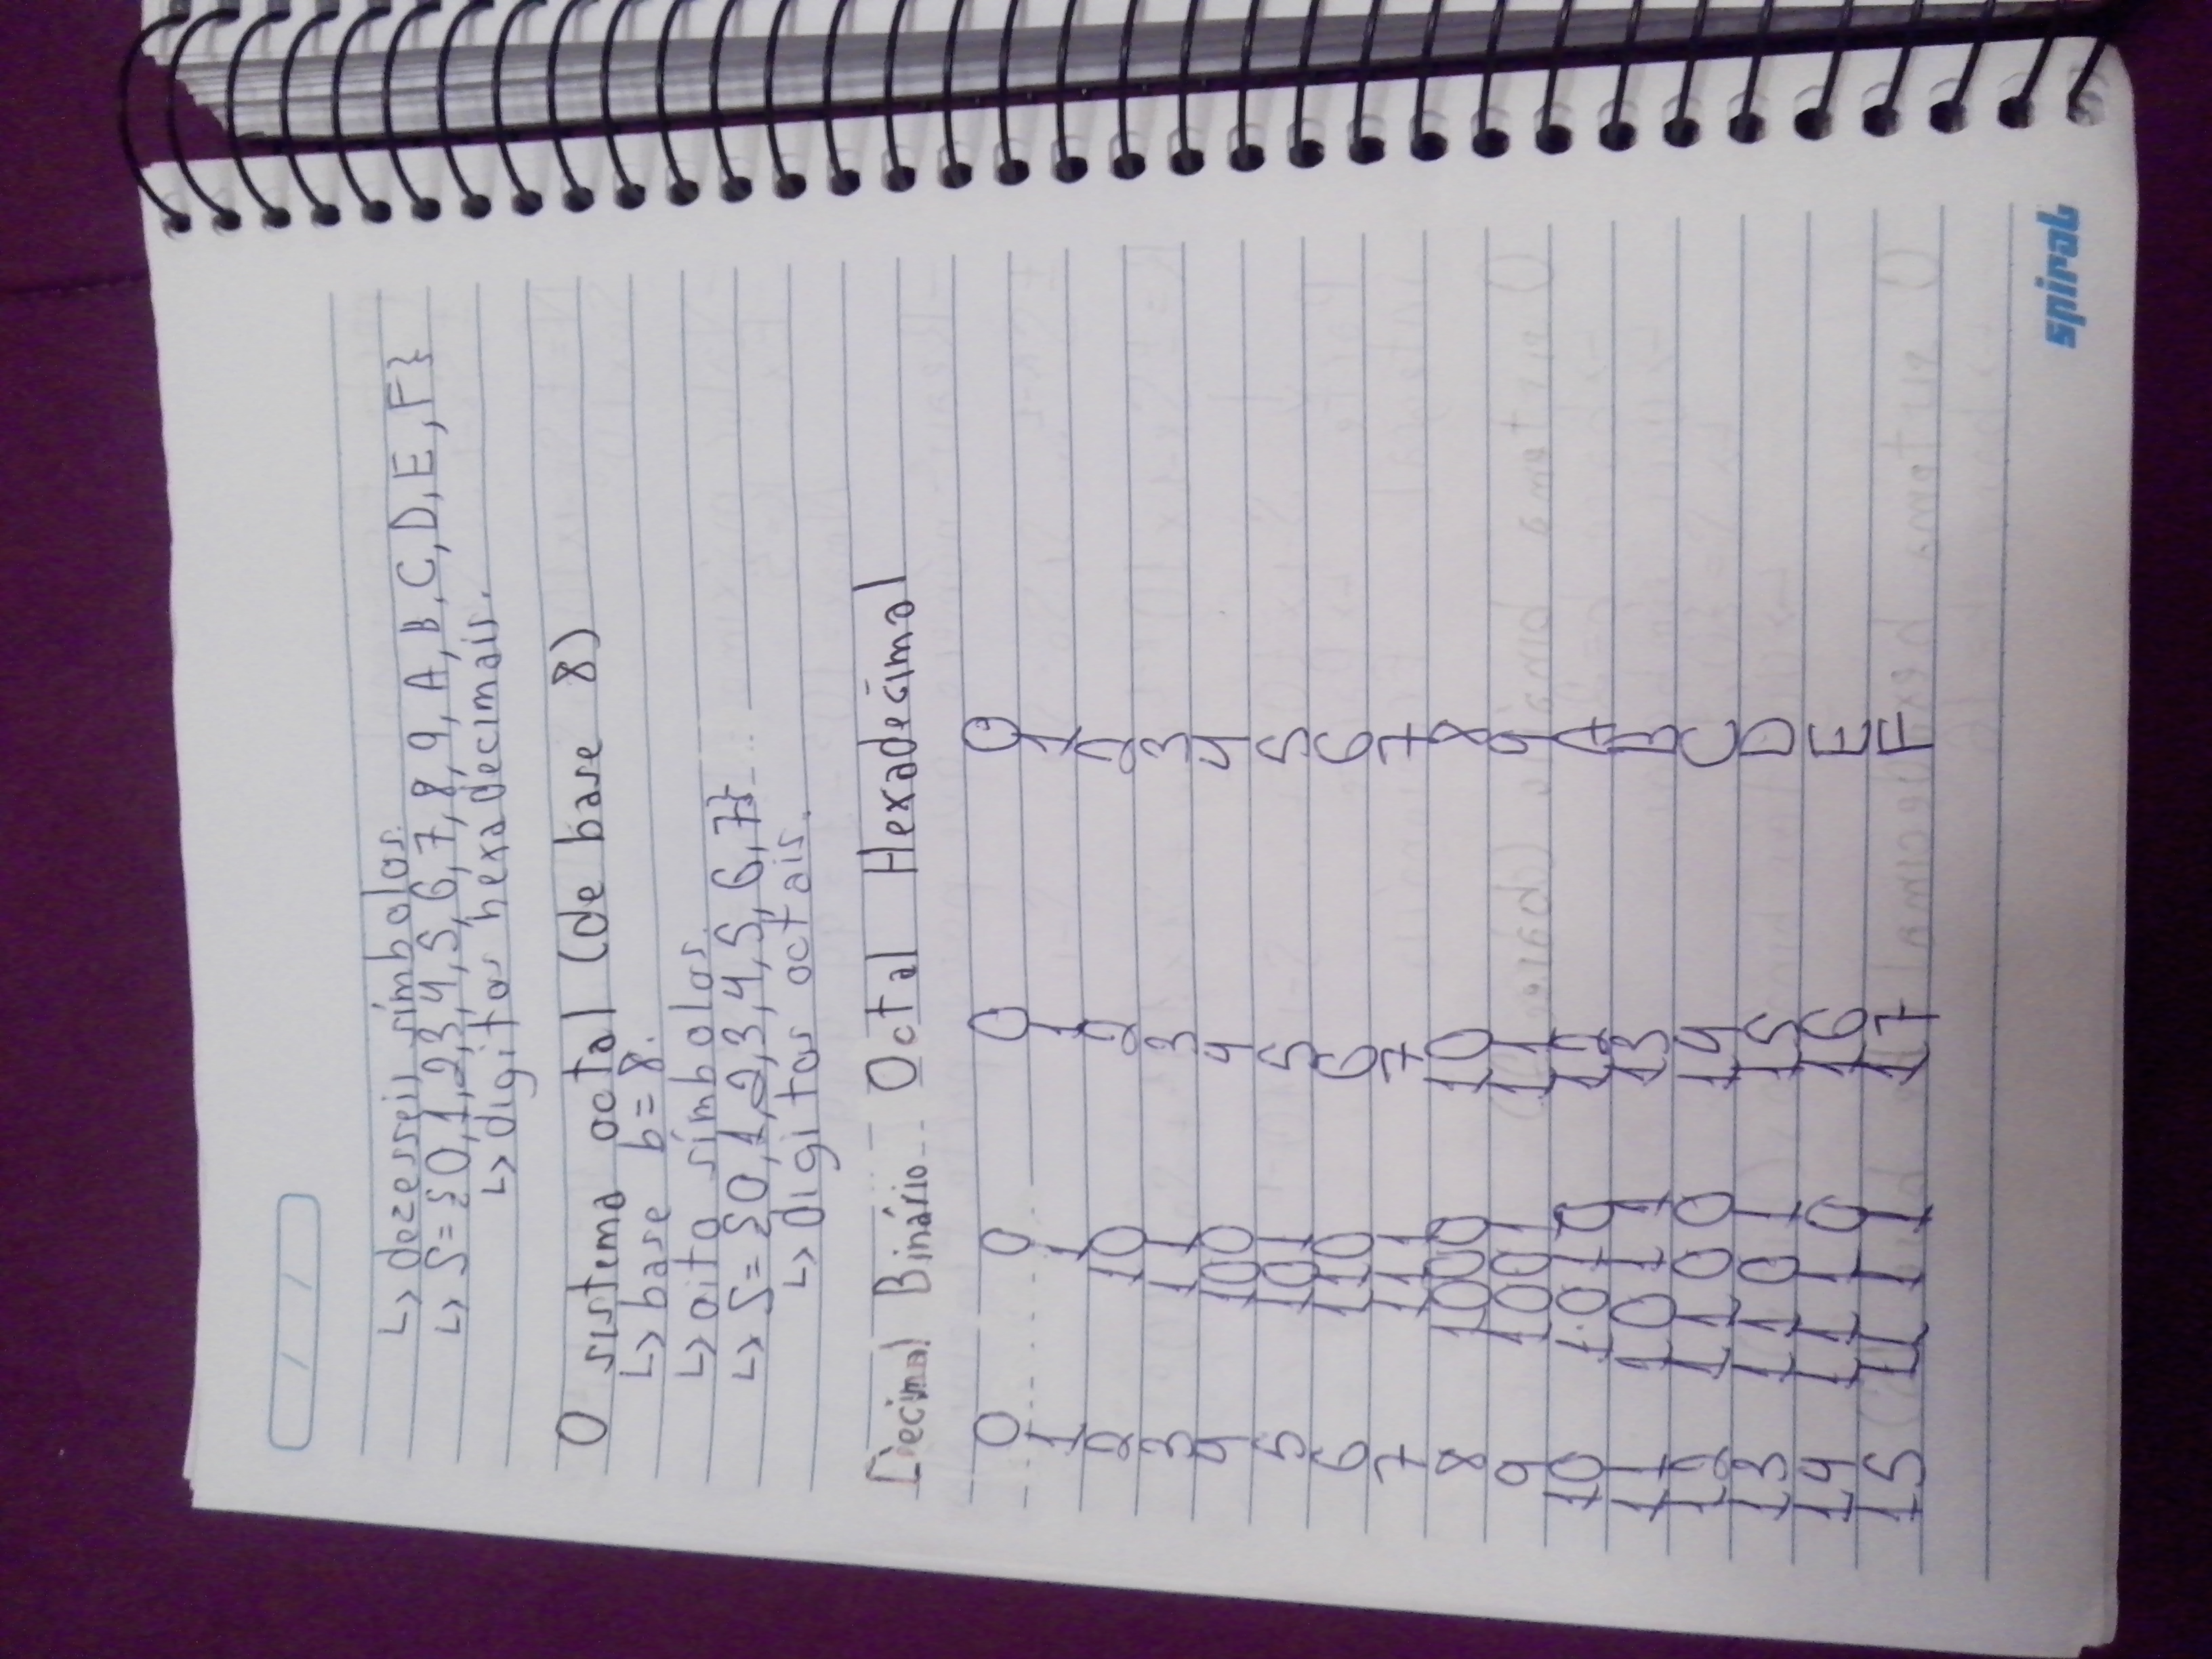 ↳ dezesseis símbolos.
↳ S={0,1,2,3,4,5,6,7,8,9,A,B,C,D,E,F}
↳ digitos hexadecimais.
O sistema octal (de base 8)
↳ base b=8.
↳ oito símbolos.
↳ S={0,1,2,3,4,5,6,7}
↳ digitos octais.
Decimal Binário Octal Hexadecimal
0 0 0 0
1 1 1 1
2 10 2 2
3 11 3 3
4 100 4 4
5 101 5 5
6 110 6 6
7 111 7 7
8 1000 10 8
9 1001 11 9
10 1010 12 A
11 1011 13 B
12 1100 14 C
13 1101 15 D
14 1110 16 E
15 1111 17 F
spiral